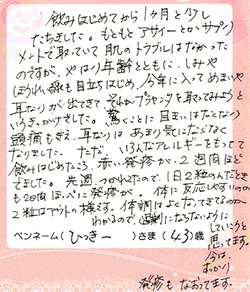 飲みはじめてから1ヶ月と少し
たちました。もともとアサイーとかサプリ
メントで取っていて肌のトラブルはなかった
のですが、やはり年齢とともに、しみや
ほうれい線も目立ちはじめ、今年に入ってめまいや
耳なりが出てきて それがプラセンタを取ってみようと
いうきっかけでした。驚くことに 目まいはなくなり
頭痛もぎえ、耳なりは あまり気にならなく
なりました。ただ、いろんなアレルギーをもってて
飲みはじめたころ、赤い発疹が、2週間ほど
でました。先週、つかれたので、1日2粒のんだとき
も2の日ほっぺに発疹が。体に反応しやすいので
2粒はアウトの様です。体調はよくなってきてるのが
わかるので、過剰にならないように
していこうと
思ってます。
今は、
すっかり
発疹も なおってます。
ペンネーム(ひっきー)さま(43)歳